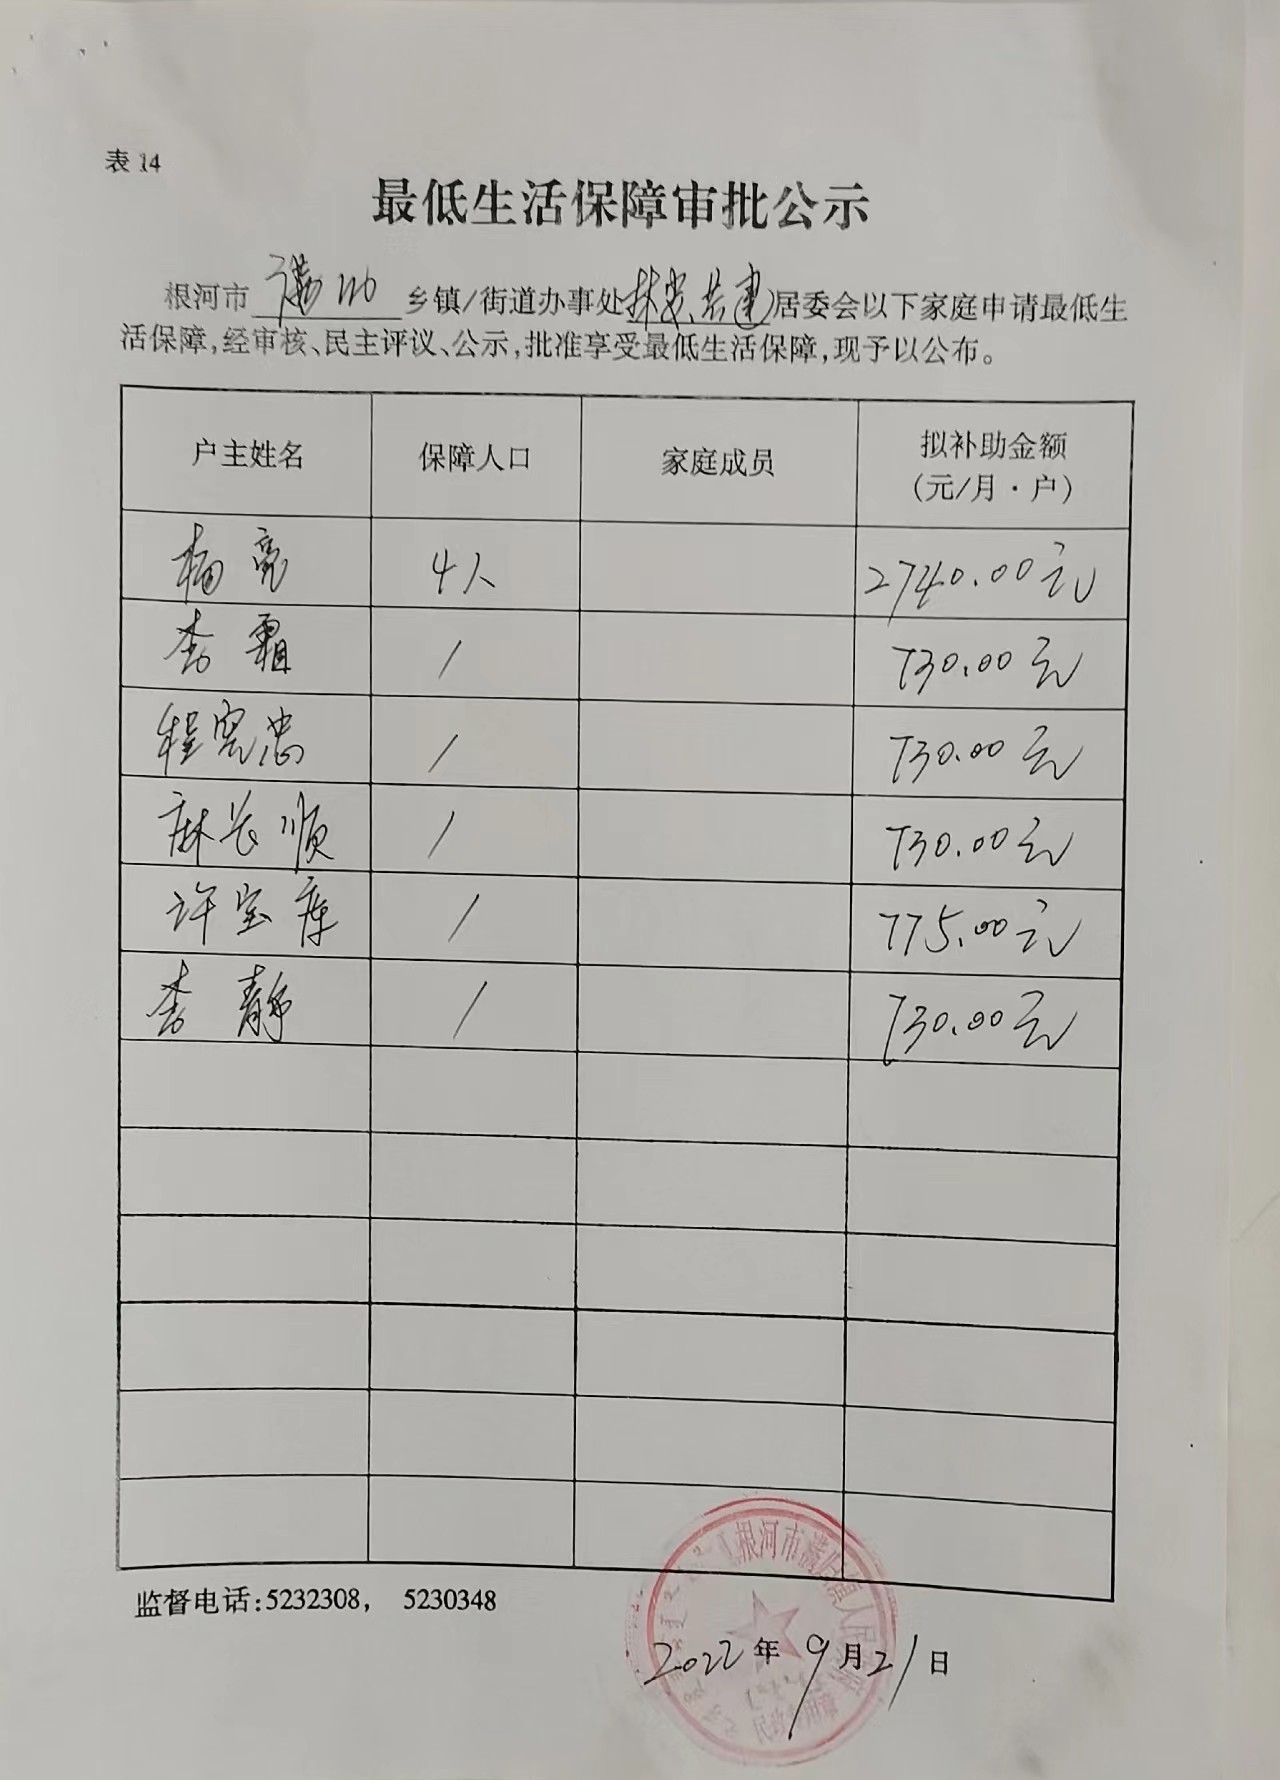 表 14
最低生活保障审批公示
根河市 满归 乡镇/街道办事处 林安共建 居委会以下家庭申请最低生
活保障,经审核、民主评议、公示,批准享受最低生活保障,现予以公布。
户主姓名 保障人口 家庭成员 拟补助金额
(元/月·户)
杨亮 4人 2740.00元
李霜 / 730.00元
程宪忠 / 730.00元
麻长顺 / 730.00元
许宝库 / 775.00元
李静 / 730.00元
根河市满归镇人民
监督电话:5232308, 5230348
2022年9月21日